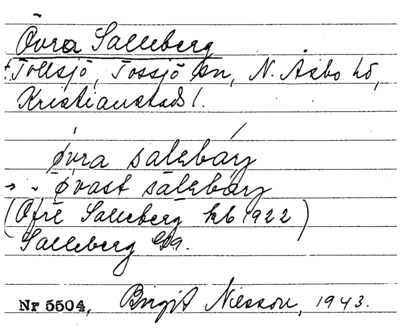 Övra Salleberg
Tollsjö, Tossjö sn, N. Åsbo hd,
Kristianstads l.
øvra salebárj
" " øvast sálebárj
(Öfre Salleberg kb 1922)
Salleberg Gs9.
Nr 5504, Birgit Nilsson, 1943.